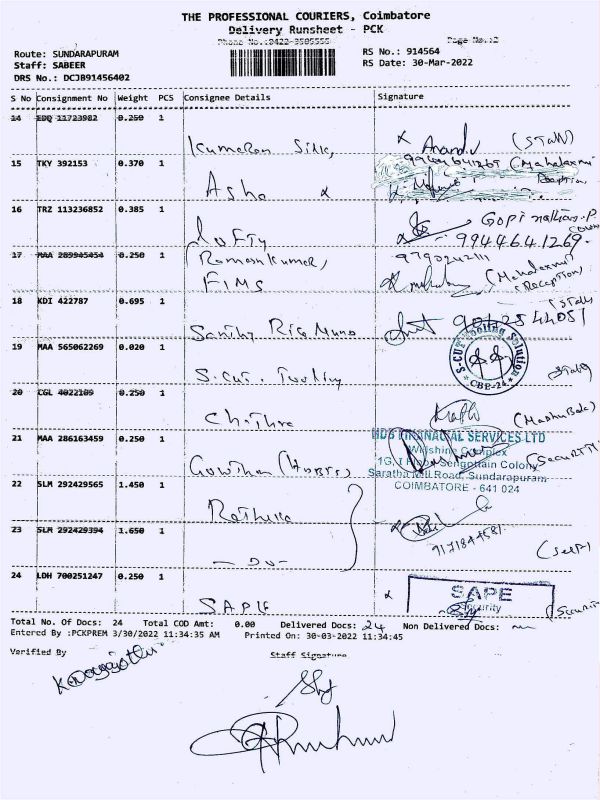 THE PROFESSIONAL COURIERS, Coimbatore
Delivery Runsheet - PCK
Phone No.:0422-3505555 Page No.:2
Route: SUNDARAPURAM RS No.: 914564
Staff: SABEER RS Date: 30-Mar-2022
DRS No.: DCJB91456402
S No Consignment No Weight PCS Consignee Details Signature
14 EDQ 11723982 0.250 1
Kumaran Silks, Anand.v (Staff)
15 TKY 392153 0.370 1 (Mahalaxmi
Asha Reception)
16 TRZ 113236852 0.385 1
Lofty 9944641269.
17 MAA 289945454 0.250 1
Ramankumar, 9790242111
FIMS (Mahalaxmi
Reception)
18 KDI 422787 0.695 1
19 MAA 565062269 0.020 1
S.Cut. Tooling
S-CUT Tooling Solution
CBE-24
20 CGL 4022189 0.250 1
Chithra
21 MAA 286163459 0.250 1
HDB FINANCIAL SERVICES LTD
Gowtham (Security)
1G, I Floor, Sengottain Colony
Saratha Mill Road, Sundarapuram
COIMBATORE - 641 024
22 SLM 292429565 1.450 1
23 SLM 292429394 1.650 1
- Do - (Self)
24 LDH 700251247 0.250 1
SAPE
Security
SAPE (Security
Total No. Of Docs: 24 Total COD Amt: 0.00 Delivered Docs: 24 Non Delivered Docs:
Entered By :PCKPREM 3/30/2022 11:34:35 AM Printed On: 30-03-2022 11:34:45
Verified By Staff Signature